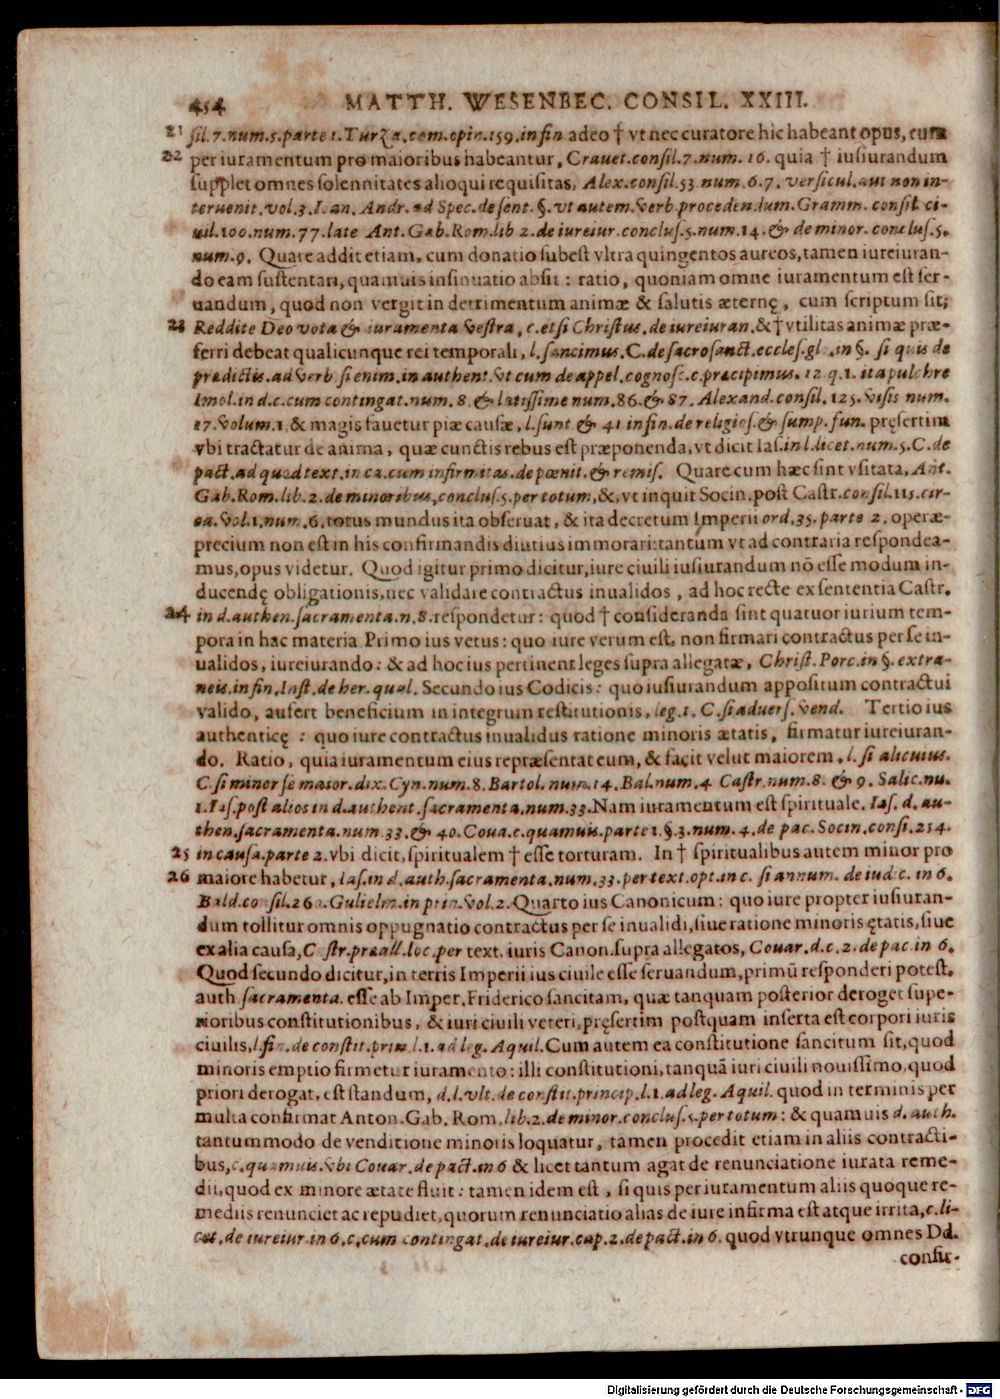 454 MATTH. WESENBEC. CONSIL. XXIII.
21 sil.7.num.5.parte 1.Turza.com.opin.159.in fin adeo † vt nec curatore hic habeant opus, cum
22 per iuramentum pro maioribus habeantur, Crauet.consil.7.num. 16. quia † iusiurandum
supplet omnes solennitates alioqui requisitas, Alex.consil.53.num.6.7. versicul.aut non in-
teruenit.vol.3.Ioan. Andr. ad Spec.de sent. §. vt autem.verb.procedendum.Gramm. consil ci-
uil.100.num.77.late Ant.Gab.Rom.lib 2.de iureiur.conclus.5.num.14.& de minor.conclus.5.
num.9. Quare addit etiam, cum donatio subest vltra quingentos aureos, tamen iureiuran-
do eam sustentari, quamuis insinuatio absit: ratio, quoniam omne iuramentum est ser-
uandum, quod non vergit in detrimentum animæ & salutis æternę, cum scriptum sit;
23 Reddite Deo vota & iuramenta vestra, c.etsi Christus.de iureiuran.& † vtilitas animæ præ-
ferri debeat qualicunque rei temporali, l.sancimus.C.de sacrosanct.eccles.gl..in §. si quis de
prædictis.ad verb si enim.in authent.vt cum de appel.cognosc.c.præcipimus. 12 q.1. ita pulchre
Imol.in d.c.cum contingat.num. 8.& latissime num.86.& 87. Alexand.consil.125.visis num.
17.Volum.1.& magis fauetur piæ causæ, l.sunt & 41 in fin.de religios.& sump.fun. pręsertim
vbi tractatur de anima, quæ cunctis rebus est præponenda, vt dicit Ias.in l.licet.num.5.C.de
pact.ad quod text.in ca.cum infirmitas.de pœnit.& remis. Quare cum hæc sint vsitata, Ant.
Gab.Rom.lib.2.de minoribus, conclus.5.per totum,&,vt inquit Socin.post Castr.consil.115.cir-
ca.Vol.1.num.6.totus mundus ita obseruat, & ita decretum Imperii ord.35.parte 2. operæ-
precium non est in his confirmandis diutius immorari: tantum vt ad contraria respondea-
mus,opus videtur. Quod igitur primo dicitur,iure ciuili iusiurandum nō esse modum in-
ducendę obligationis,nec validare contractus inualidos, ad hoc recte ex sententia Castr.
24 in d.authen.sacramenta.n.8.respondetur: quod † consideranda sint quatuor iurium tem-
pora in hac materia Primo ius vetus: quo iure verum est, non firmari contractus per se in-
ualidos, iureiurando: & ad hoc ius pertinent leges supra allegatæ, Christ.Porc.in §. extra-
neis.in fin.Inst.de her.qual. Secundo ius Codicis: quo iusiurandum appositum contractui
valido, aufert beneficium in integrum restitutionis, leg.1. C.si aduers.vend. Tertio ius
authenticę: quo iure contractus inualidus ratione minoris ætatis, firmatur iureiuran-
do. Ratio, quia iuramentum eius repræsentat eum, & facit velut maiorem, l. si alicuius.
C.si minor se maior.dix.Cyn.num.8.Bartol.num.14.Bal.num.4 Castr.num.8. & 9. Salic.nu.
1.Ias.post alios in d.authent.sacramenta.num.33.Nam iuramentum est spirituale. Ias. d. au-
then.sacramenta.num.33.& 40.Coua.c.quamuis.parte 1.§.3.num.4.de pac.Socin.consi.254.
25 in causa.parte 2.vbi dicit, spiritualem † esse torturam. In † spiritualibus autem minor pro
26 maiore habetur, Ias.in d.auth.sacramenta.num.33.per text.opt.in c. si annum. de iudic. in 6.
Bald.consil.260.Gulielm.in prin.Vol.2.Quarto ius Canonicum: quo iure propter iusiuran-
dum tollitur omnis oppugnatio contractus per se inualidi, siue ratione minoris ętatis, siue
ex alia causa, Castr.præall.loc.per text. iuris Canon.supra allegatos, Couar.d.c.2.de pac.in 6.
Quod secundo dicitur, in terris Imperii ius ciuile esse seruandum,primū responderi potest.
auth.sacramenta. esse ab Imper.Friderico sancitam, quæ tanquam posterior deroget supe-
rioribus constitutionibus, & iuri ciuili veteri,pręsertim postquam inserta est corpori iuris
ciuilis,l.fin.de constit.prin.l.1.ad leg.Aquil.Cum autem ea constitutione sancitum sit,quod
minoris emptio firmetur iuramento: illi constitutioni, tanquā iuri ciuili nouissimo,quod
priori derogat, est standum, d.l.vlt.de constit.princip.l.1.ad leg. Aquil. quod in terminis per
multa confirmat Anton.Gab. Rom.lib.2.de minor.conclus.5.per totum: & quamuis d. auth.
tantummodo de venditione minoris loquatur, tamen procedit etiam in aliis contracti-
bus,c.quamuis.vbi Couar.de pact.in 6 & licet tantum agat de renunciatione iurata reme-
dii,quod ex minore ætate fluit: tamen idem est, si quis per iuramentum aliis quoque re-
mediis renunciet ac repudiet,quorum renunciatio alias de iure infirma est atque irrita,c.li-
cet,de iureiur.in 6.c.cum contingat.de iureiur.cap.2.de pact.in 6. quod vtrunque omnes Dd.
confir-
Digitalisierung gefördert durch die Deutsche Forschungsgemeinschaft - DFG